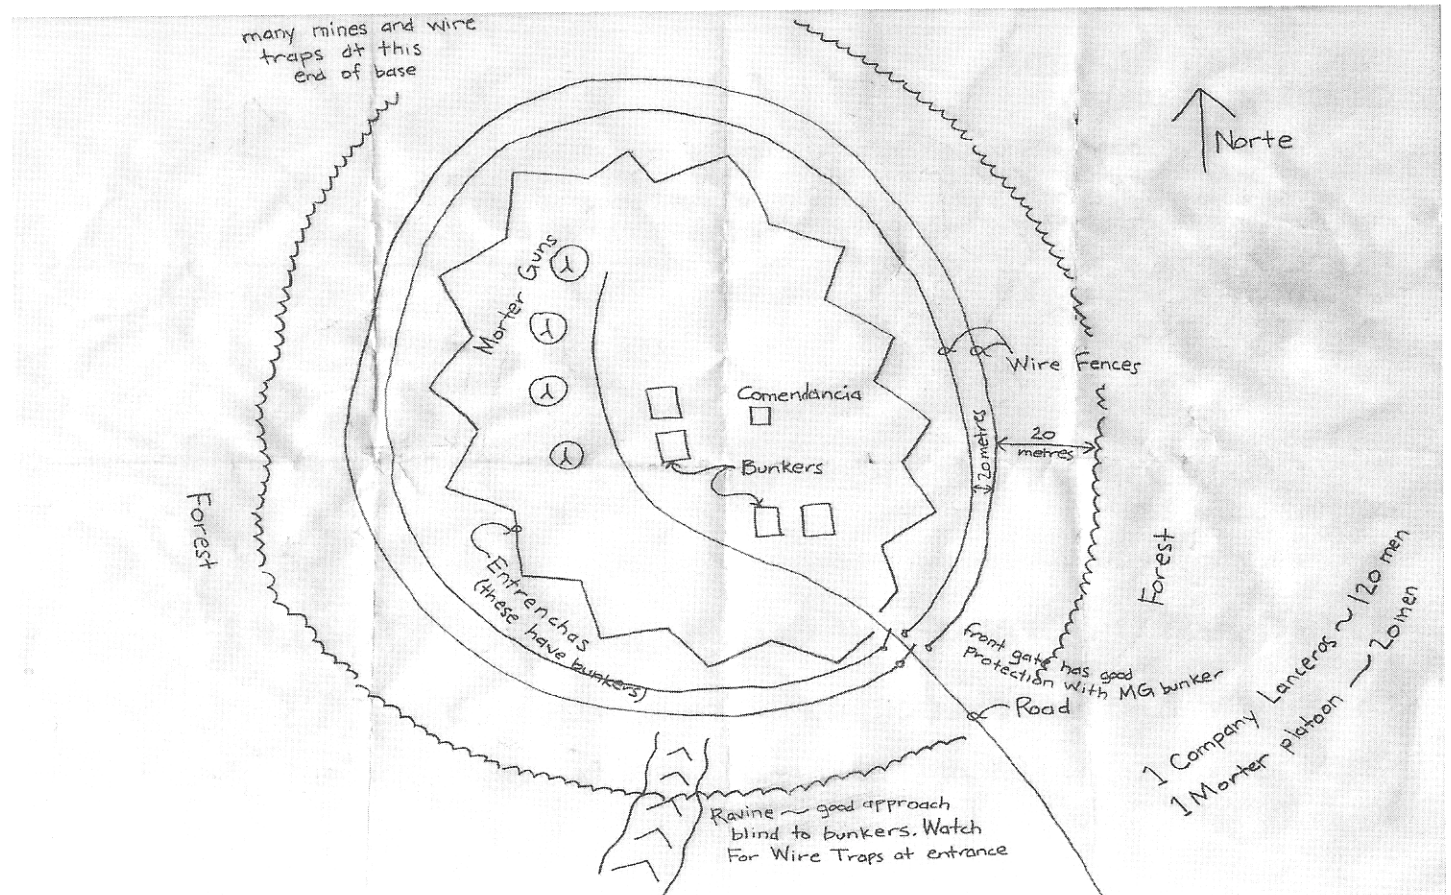 many mines and wire
traps at this
end of base
Norte
Morter Guns
Wire Fences
Comendancia
20 metres
20
metres
Bunkers
Forest
Entrenchas
(these have bunkers)
Forest
front gate has good
protection with MG bunker
Road
1 Company Lanceros ~ 120 men
1 Morter platoon — 20 men
Ravine — good approach
blind to bunkers. Watch
For Wire Traps at entrance